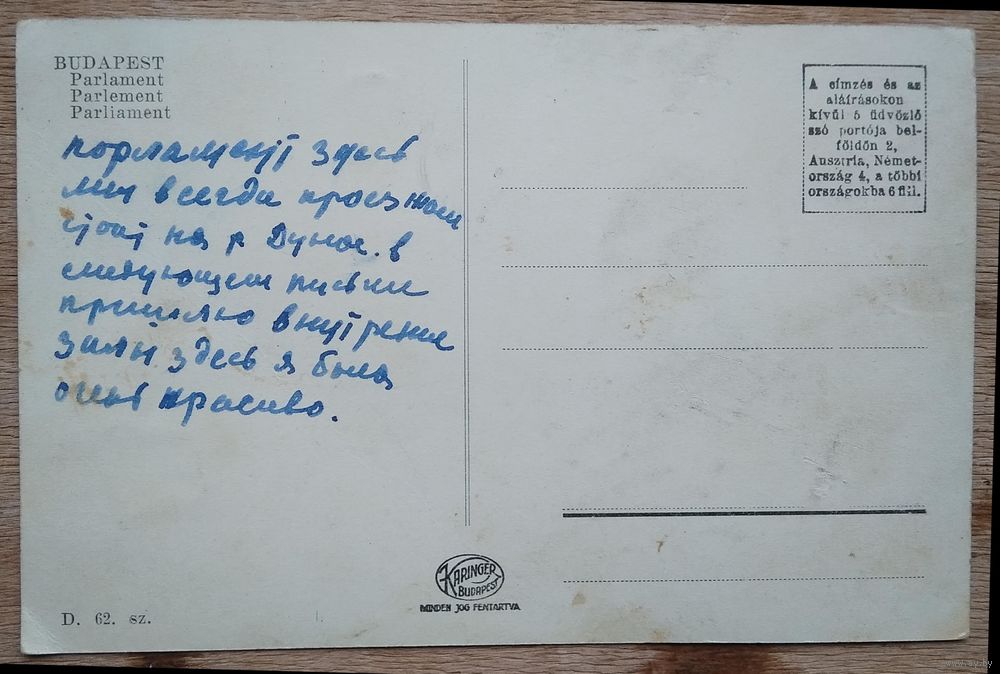 BUDAPEST
Parlament
Parlement
Parliament
порламент здесь
мы всегда проезжаем
стоит на р Дунае. в
следующем письме
пришлю внутрение
залы здесь я была
очень красиво.
A címzés és az
aláírásokon
kívül 5 üdvözlő
szó portója bel-
földön 2,
Ausztria, Német-
ország 4, a többi
országokba 6 fill.
KARINGER
BUDAPEST
MINDEN JOG FENTARTVA
D. 62. sz.